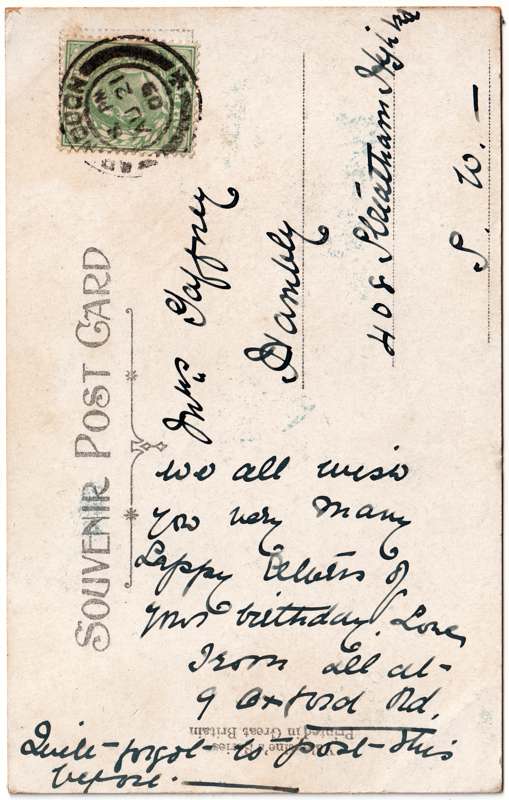 SOUVENIR POST CARD
Mrs Gaffney
Hambly
408 Streatham High Rd
S. W. —
we all wish
you very many
happy returns of
your birthday. Love
From all at
9 Oxford Rd.
Quite forgot to post this
before.
Printed in Great Britain